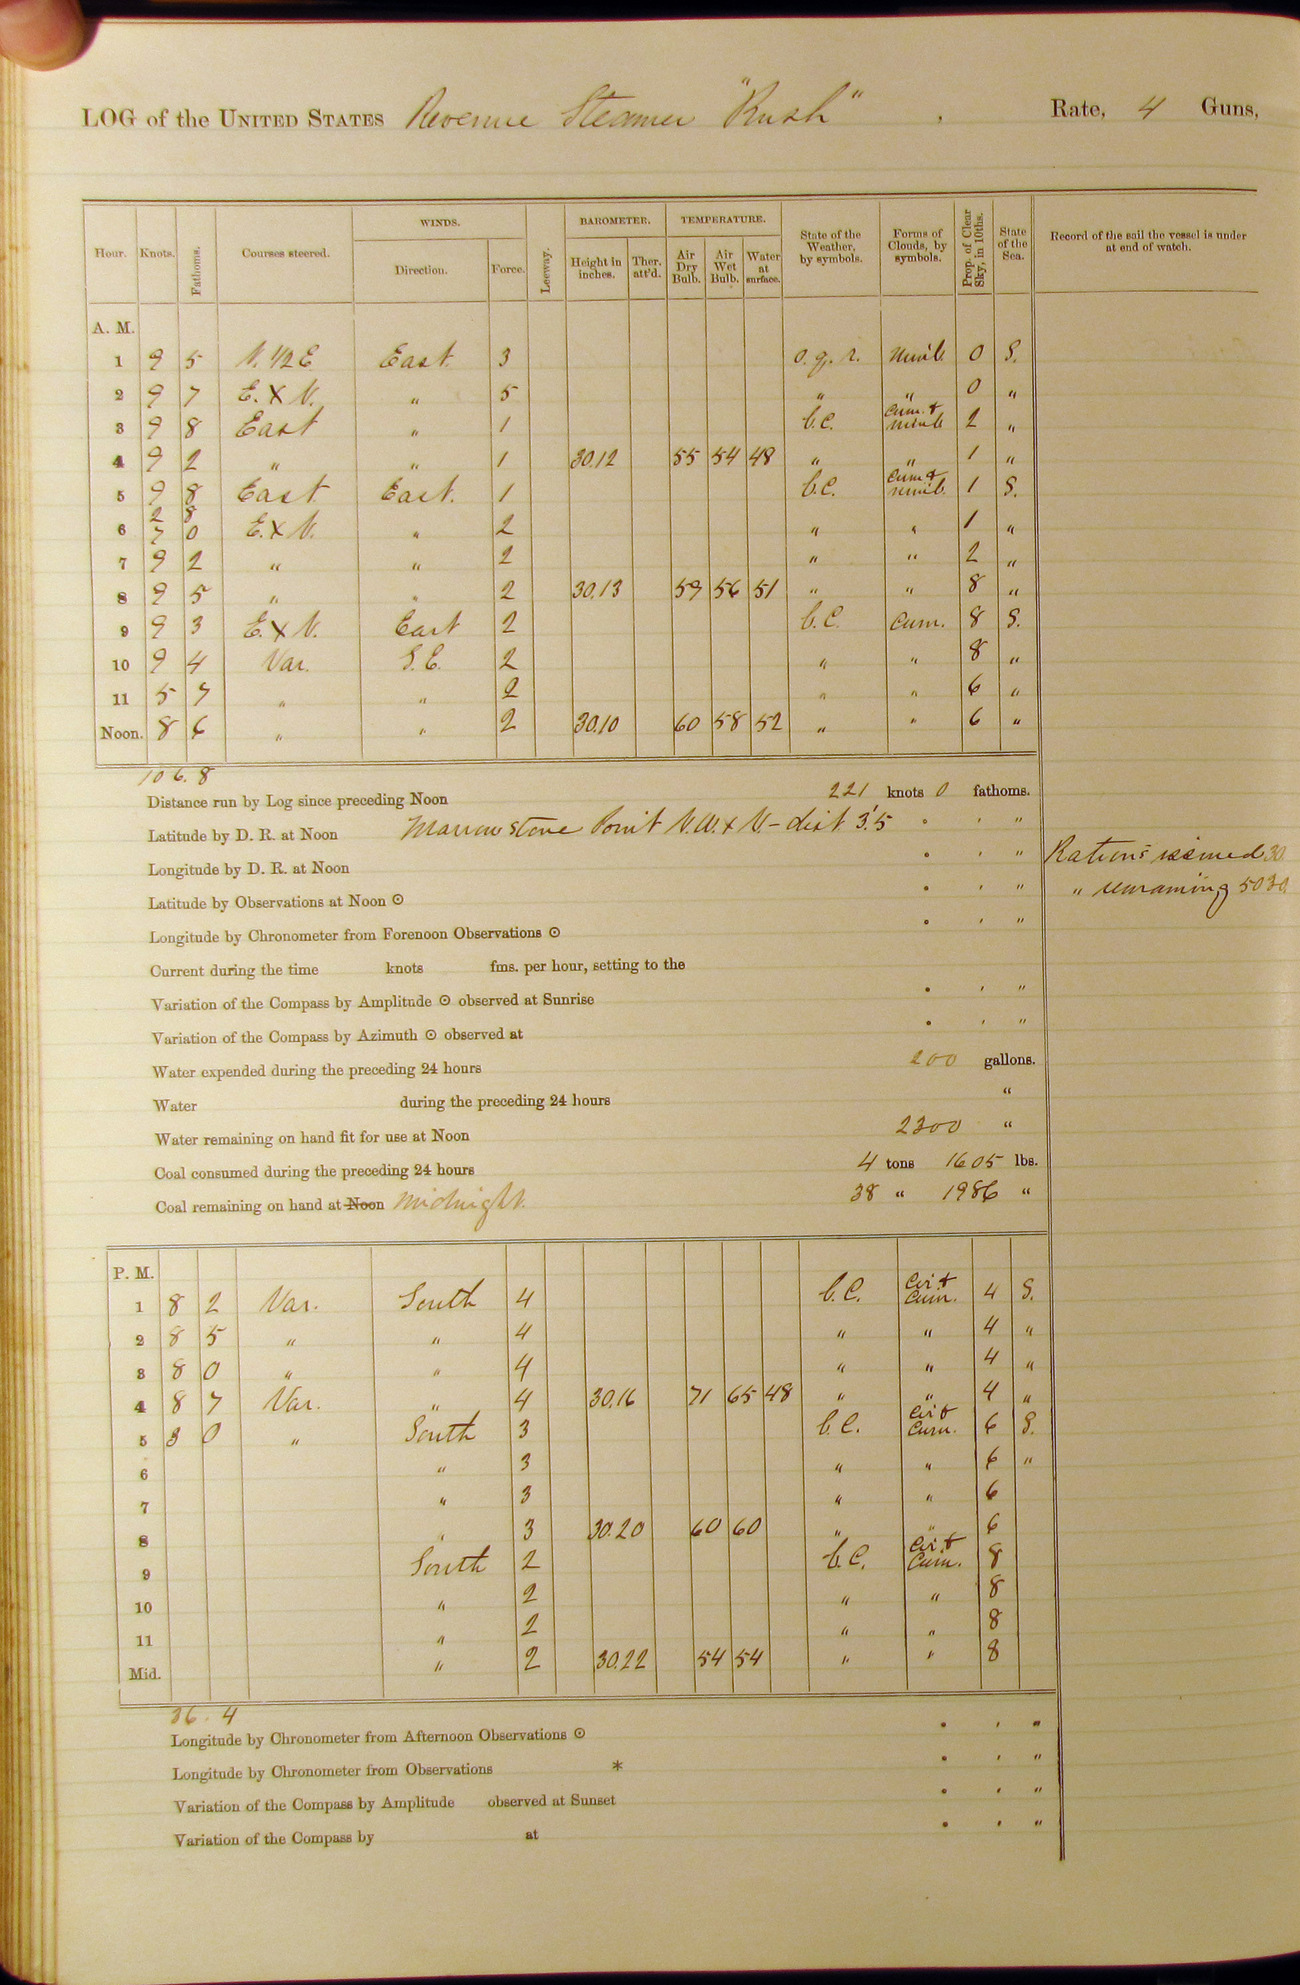 LOG of the UNITED STATES Revenue Steamer "Rush", Rate, 4 Guns,
Hour. Knots. Fathoms. Courses steered. WINDS. Direction. Force. Leeway. BAROMETER. Height in inches. Ther. att'd. TEMPERATURE. Air Dry Bulb. Air Wet Bulb. Water at surface. State of the Weather, by symbols. Forms of Clouds, by symbols. Prop. of Clear Sky, in 10ths. State of the Sea. Record of the sail the vessel is under at end of watch.
A. M.
1 9 5 N. 1/2 E East. 3 o. g. r. Nimb. 0 S.
2 9 7 E. X N. " 5 " " 0 "
3 9 8 East " 1 b.c. Cum. & Nimb 2 "
4 9 2 " " 1 30.12 55 54 48 " " 1 "
5 9 8 East East. 1 b.c. Cum & Nimb. 1 S.
2 8
6 7 0 E. X N. " 2 " " 1 "
7 9 2 " " 2 " " 2 "
8 9 5 " " 2 30.13 59 56 51 " " 8 "
9 9 3 E. X N. East 2 b.c. Cum. 8 S.
10 9 4 Var. S.E. 2 " " 8 "
11 5 7 " " 2 " " 6 "
Noon. 8 6 " " 2 30.10 60 58 52 " " 6 "
106.8
Distance run by Log since preceding Noon 221 knots 0 fathoms.
Latitude by D. R. at Noon Marrowstone Point N.W. X N. - dist 3.'5 ° ' "
Longitude by D. R. at Noon ° ' " Rations issued 30
Latitude by Observations at Noon ⊙ ° ' " " remaining 5030
Longitude by Chronometer from Forenoon Observations ⊙ ° ' "
Current during the time knots fms. per hour, setting to the
Variation of the Compass by Amplitude ⊙ observed at Sunrise ° ' "
Variation of the Compass by Azimuth ⊙ observed at ° ' "
Water expended during the preceding 24 hours 200 gallons.
Water during the preceding 24 hours "
Water remaining on hand fit for use at Noon 2300 "
Coal consumed during the preceding 24 hours 4 tons 1605 lbs.
Coal remaining on hand at Noon Midnight. 38 " 1986 "
P. M.
1 8 2 Var. South 4 b.c. Cir & Cum. 4 S.
2 8 5 " " 4 " " 4 "
3 8 0 " " 4 " " 4 "
4 8 7 Var. " 4 30.16 71 65 48 " " 4 "
5 3 0 " South 3 b.c. Cir & Cum. 6 S.
6 " 3 " " 6 "
7 " 3 " " 6
8 " 3 30.20 60 60 " " 6
9 South 2 b.c. Cir & Cum. 8
10 " 2 " " 8
11 " 2 " " 8
Mid. " 2 30.22 54 54 " " 8
36.4
Longitude by Chronometer from Afternoon Observations ⊙ ° ' "
Longitude by Chronometer from Observations * ° ' "
Variation of the Compass by Amplitude observed at Sunset ° ' "
Variation of the Compass by at ° ' "